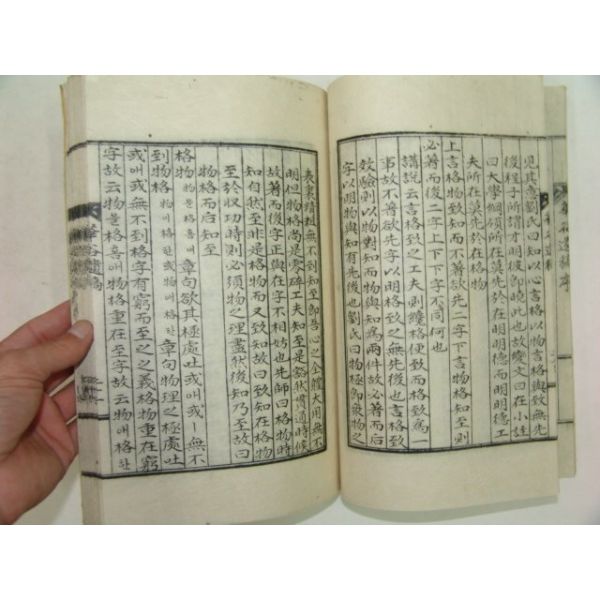 見其意劉氏曰知以心言格以物言格與致無先
後程子所謂才明彼卽曉此也故變文曰在小註
曰大學綱領所在莫先於在明明德而明明德工
夫所在莫先於在格物
上言格物致知而不著欲先二字下言物格知至則
必著而後二字上下下字不同何也
講說云言格致之工夫則纔格便致而格致爲一
事故不著欲先字以明格致之無先後也言格致
效驗則以物對知而物與知爲兩件故必著而后
字以明物與知有先後也劉氏曰物極卽致物之
表裏精粗無不到知至卽吾心之全體大用無不
明但物格尙是零碎工夫知至是豁然貫通時候
故著而後字正與在字不相妨也先師曰格物時
知自然至非是格物而又致知故曰致知在格物
至於收功時則必須物之理盡然後知乃至故曰
物格而后知至
格物 章句欲其極處吐或애或ㅣ無不
到物格 章句物理之極處吐
或애或ㅣ無不到格字有窮而至之之義格物重在窮
字故云物을格홈애物格重在至字故云物애格한